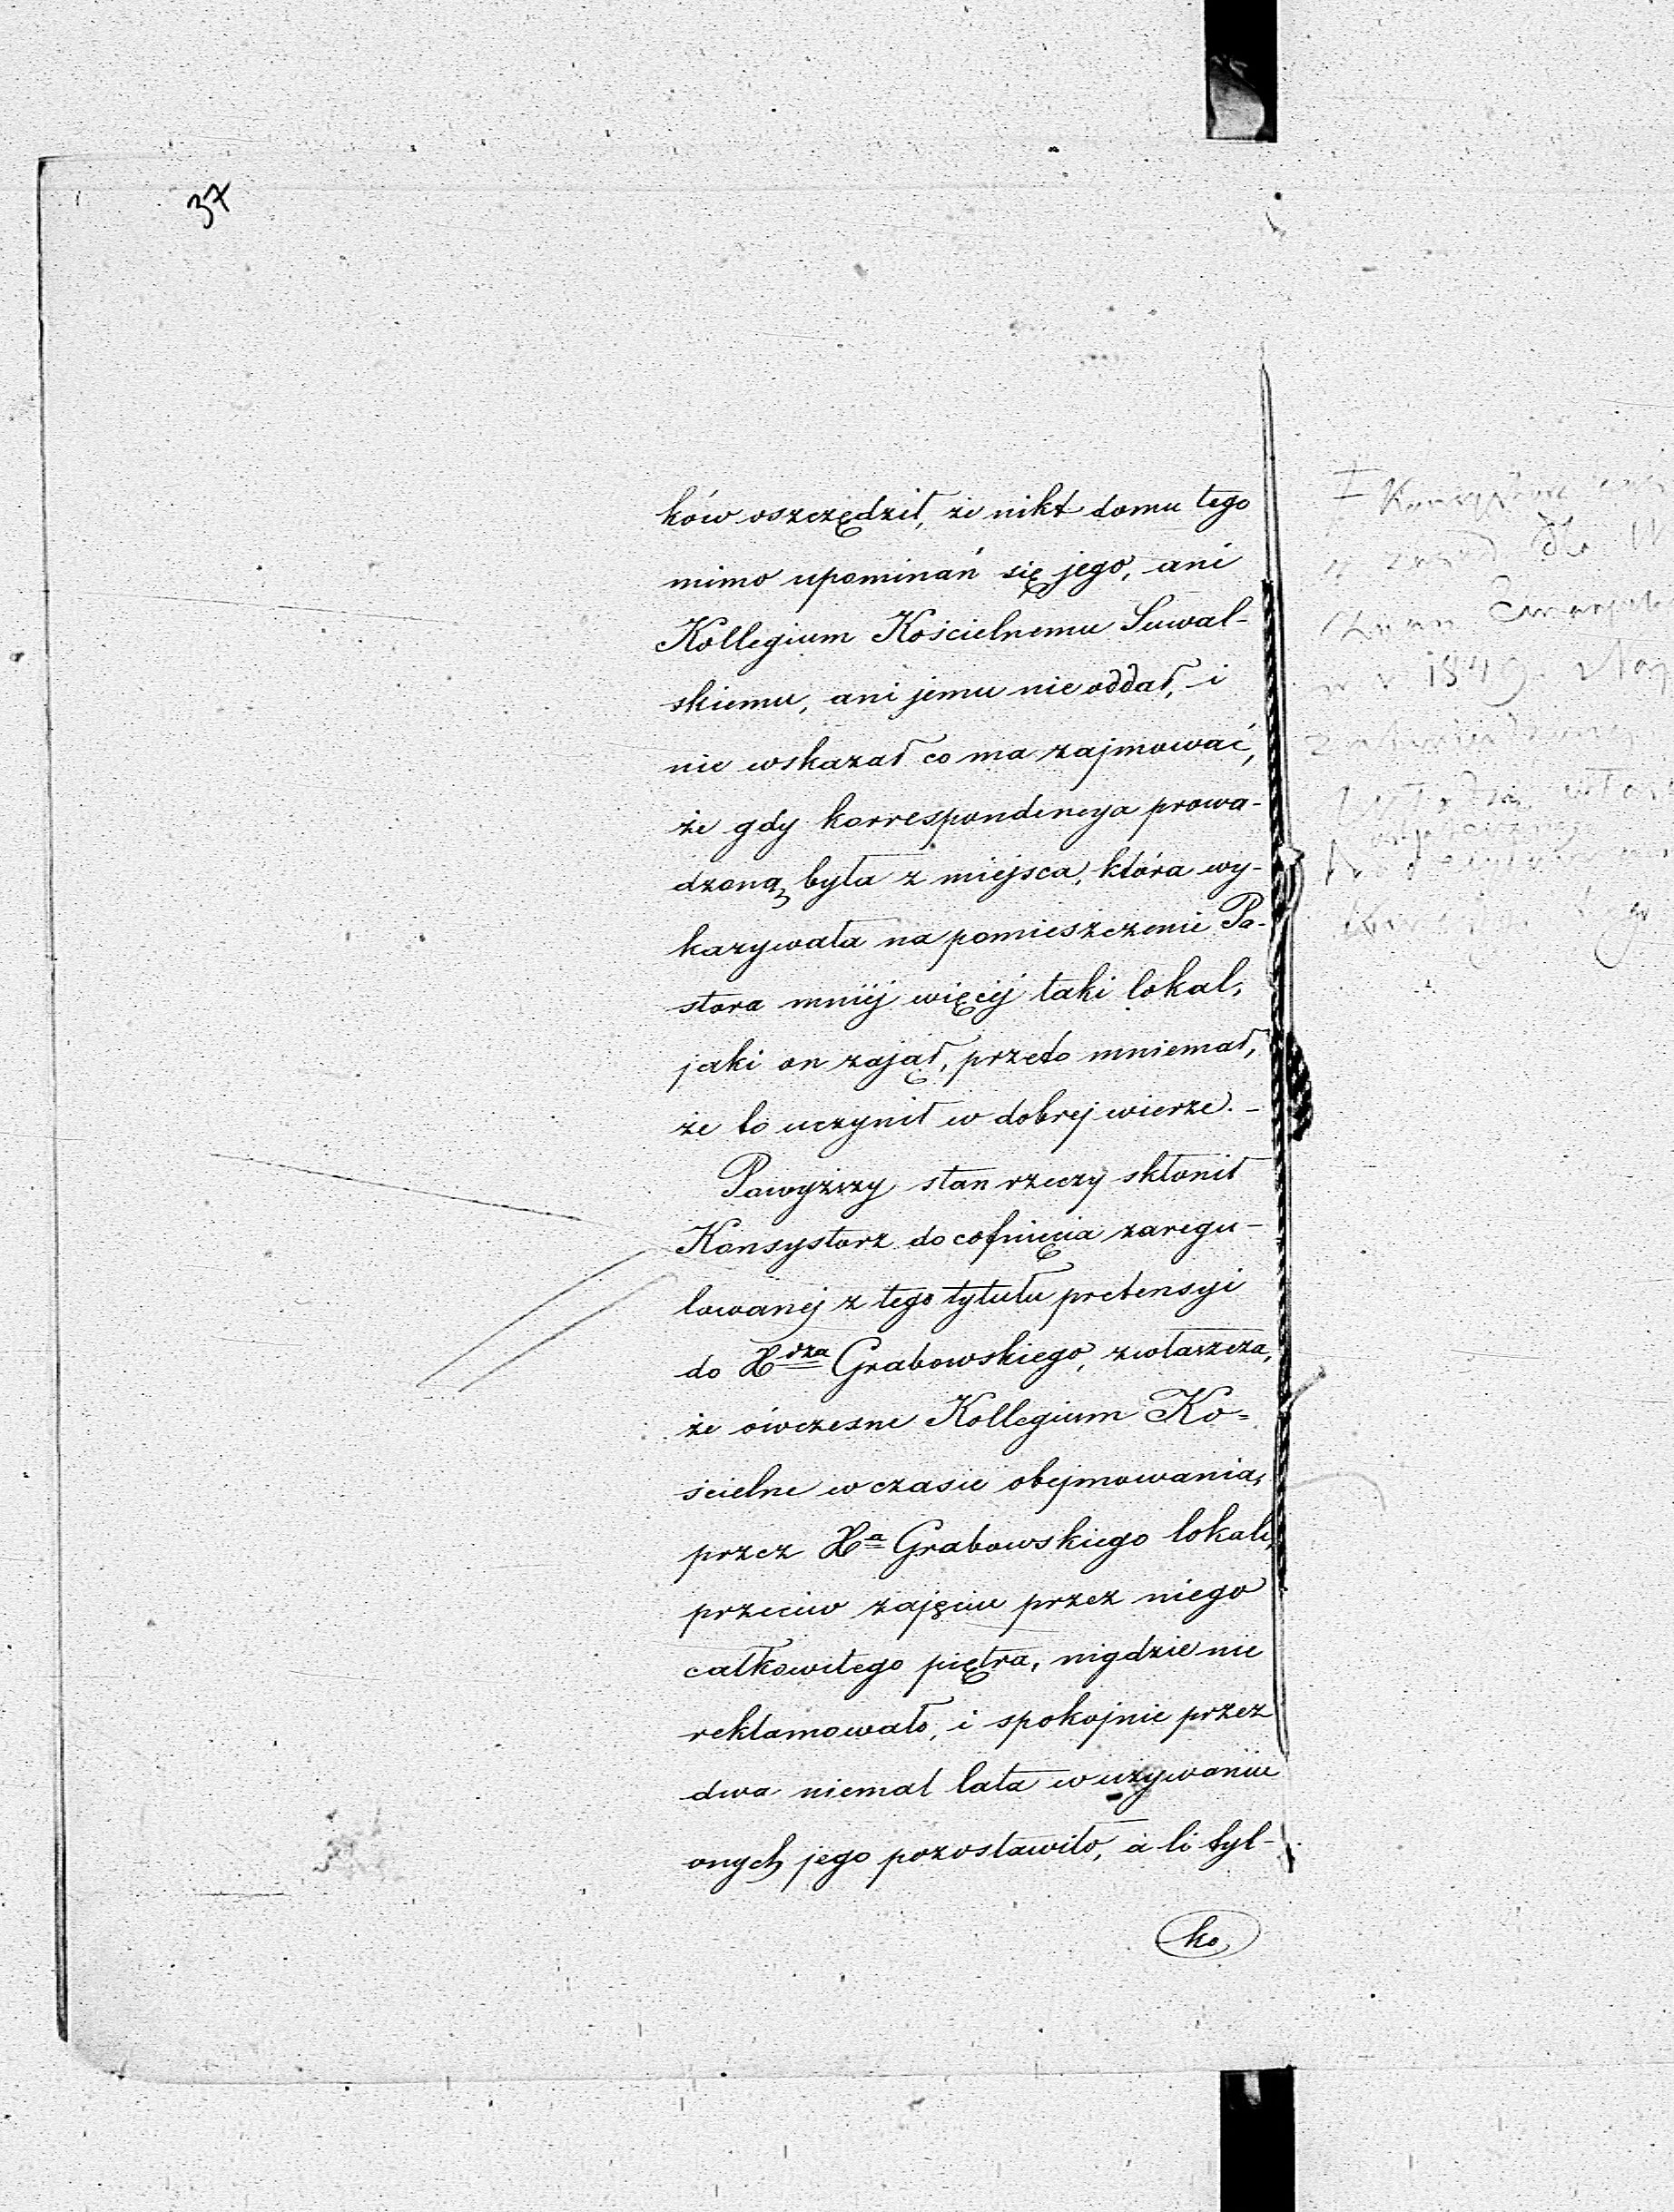 37
ków oszczędził, że nikt domu tego
mimo upominań się jego, ani
Kollegium Kościelnemu Suwal-
skiemu, ani jemu nie oddał, i
nie wskazał co ma zajmować,
że gdy korrespondencya prowa-
dzoną była z miejsca, która wy-
kazywała na pomieszczenie Pa-
stora mniej więcej taki lokal,
jaki on zajął, przeto mniemał,
że to uczynił w dobrej wierze. -
Powyższy stan rzeczy skłonił
Konsystorz do cofnięcia zaregu-
lowanej z tego tytułu pretensyi
do Xdza Grabowskiego, zwłaszcza,
że ówczesne Kollegium Ko=
ścielne w czasie obejmowania,
przez Xa Grabowskiego lokalu,
przeciw zajęciu przez niego
całkowitego piętra, nigdzie nie
reklamowało, i spokojnie przez
dwa niemal lata w używaniu
onych jego pozostawiło, a li tyl-
ko
1849